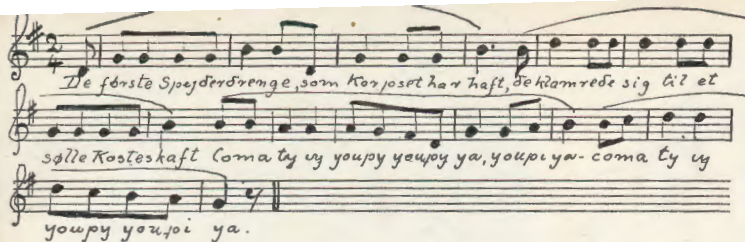 2/4
De første Spejderdrenge, som Korpset har haft, de klamrede sig til et
sølle Kosteskaft Coma ty yy youpy youpy ya, youpi ya - coma ty yy
youpy youpi ya.